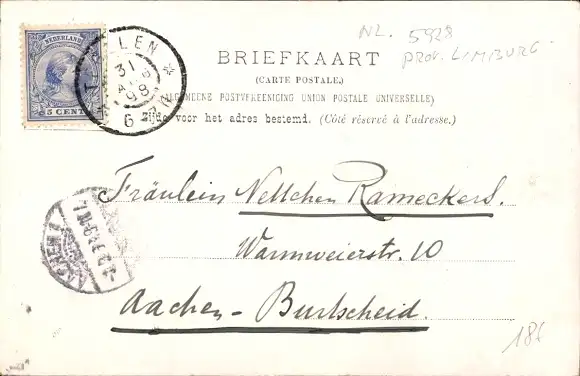 NEDERLAND
5 CENT
31
98
6
NL. 5928
PROV. LIMBURG.
BRIEFKAART
(CARTE POSTALE)
POSTVEREENIGING UNION POSTALE UNIVERSELLE)
Zijde voor het adres bestemd. (Côté réservé à l'adresse.)
Fräulein Nellchen Rameckers.
Warmweierstr. 10
Aachen - Burtscheid.
AACHEN 1
186